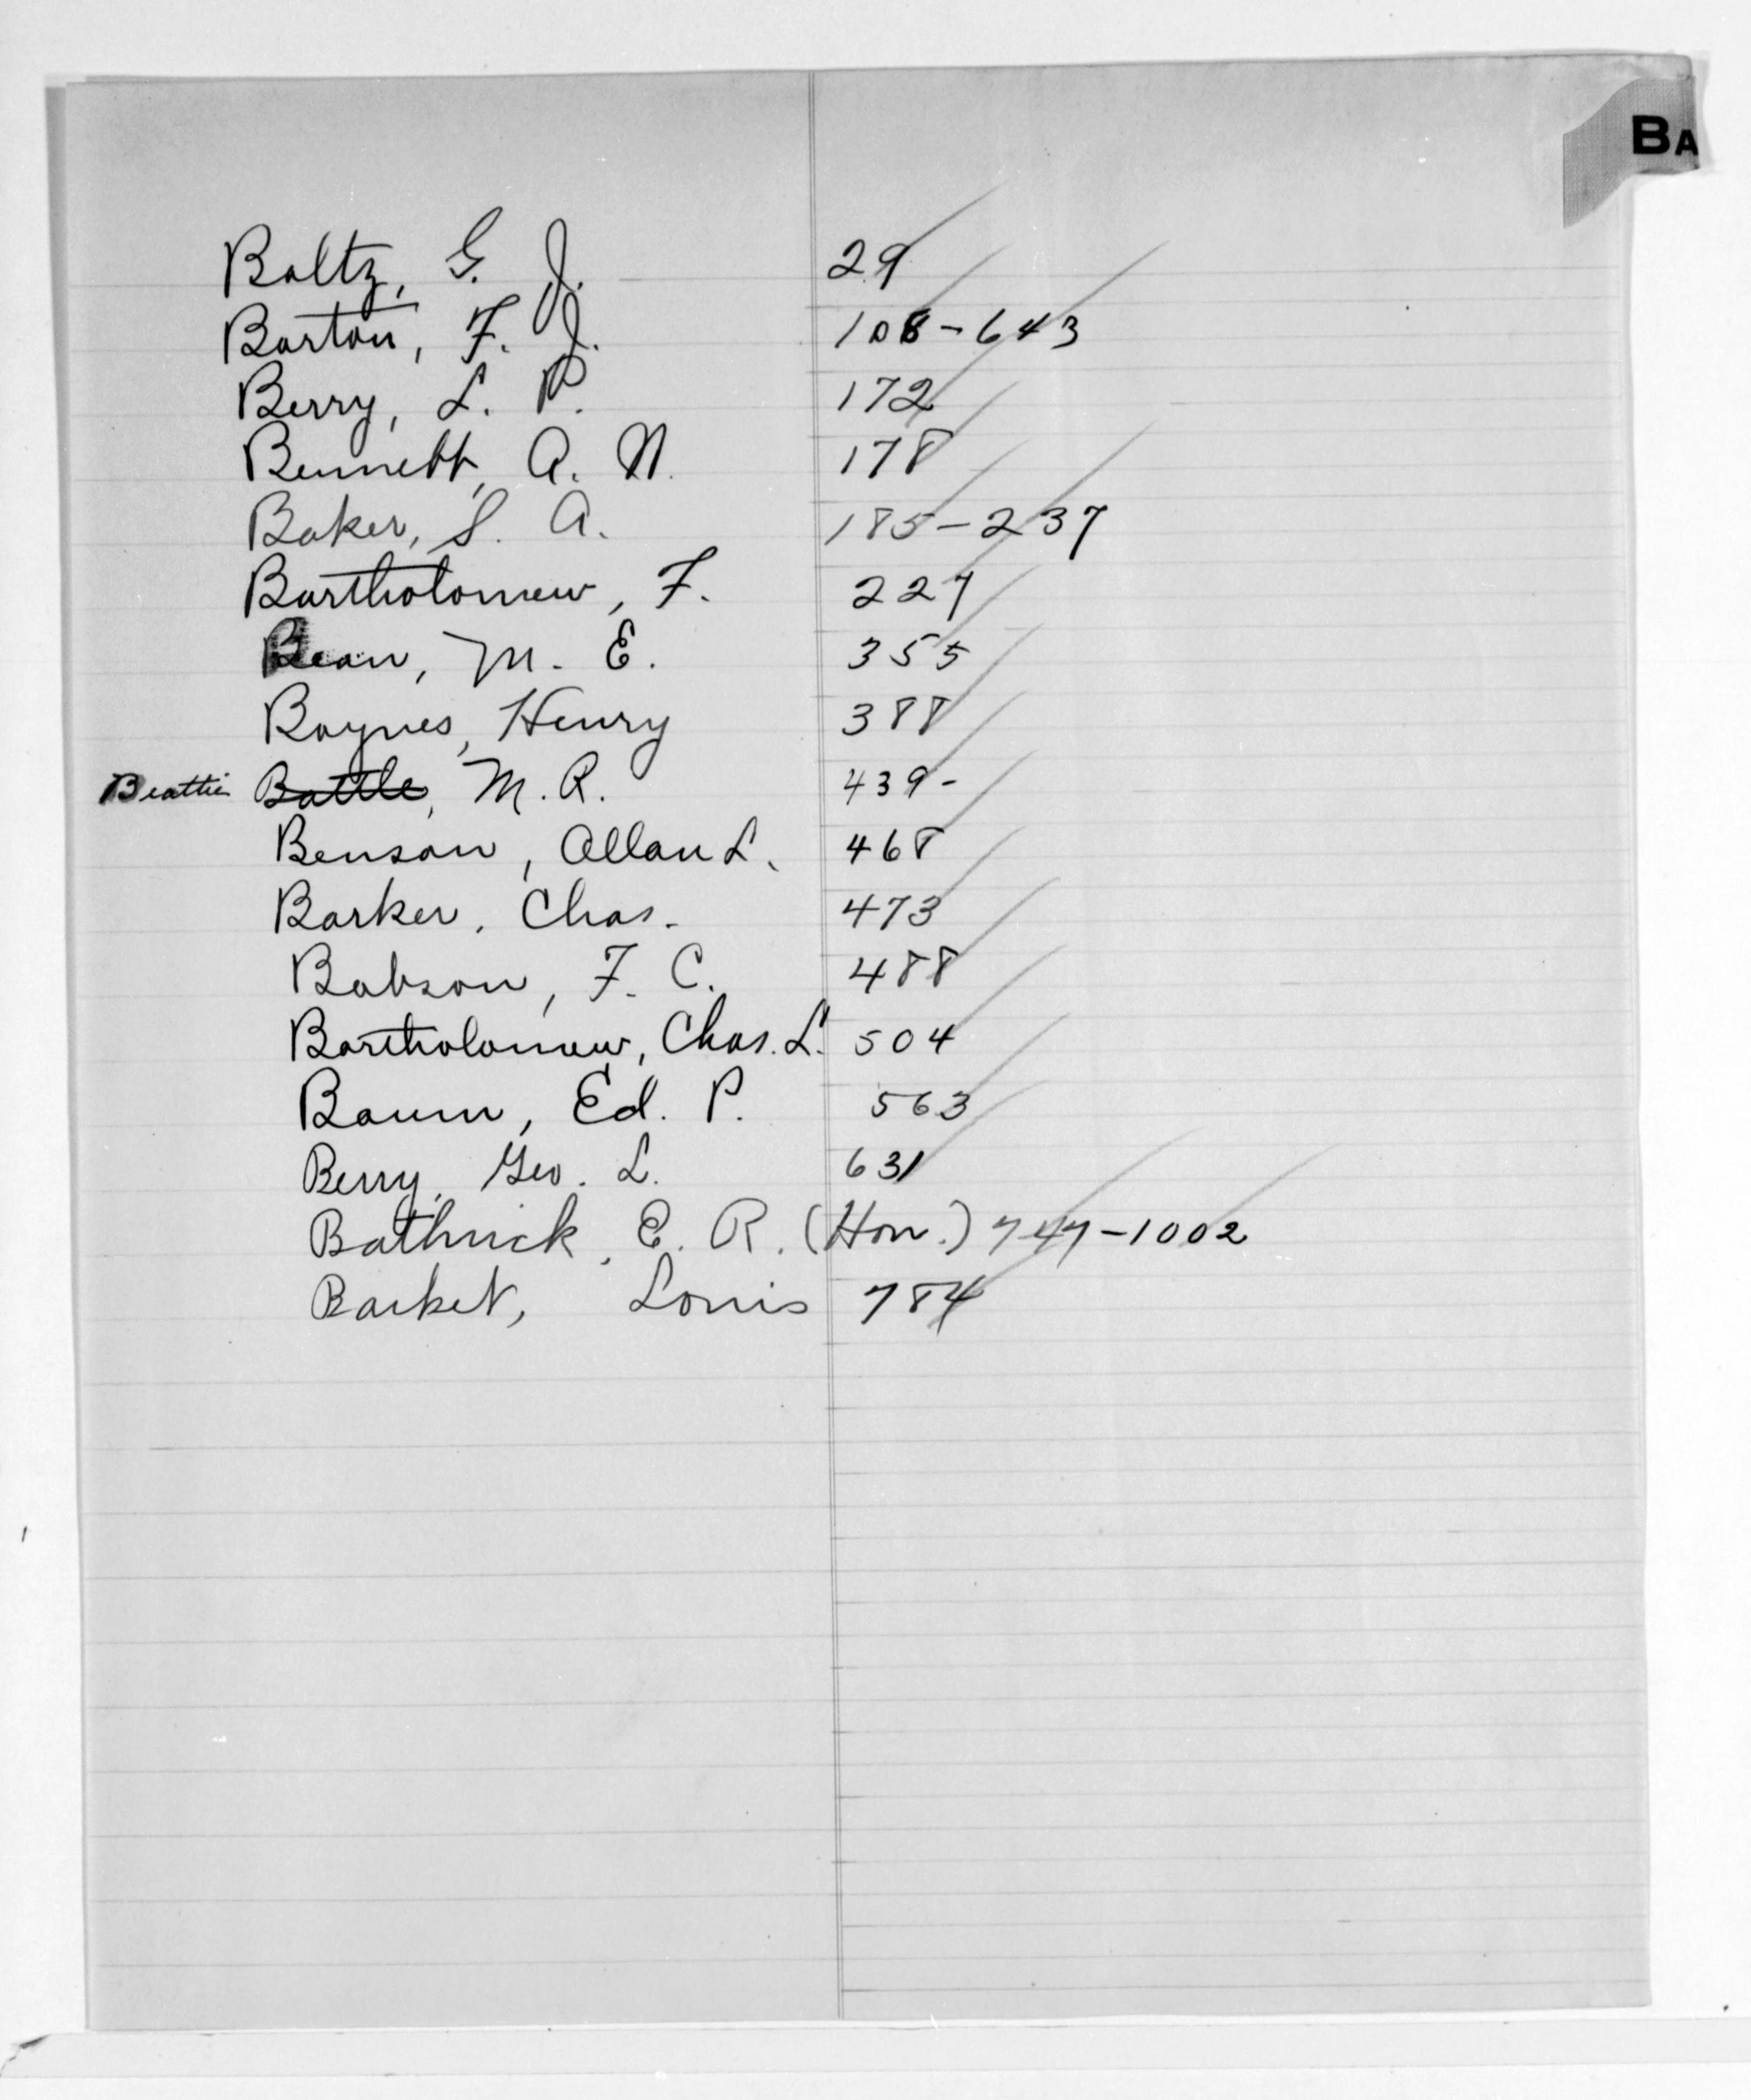 BA
Baltz, G. J. 29
Barton, F. J. 108-643
Berry, L. P. 172
Bennett, A. N. 178
Baker, S. A. 185-237
Bartholomew, F. 227
Bean, M. E. 355
Baynes, Henry 388
Beattie Battle, M. R. 439-
Benson, Allan L. 468
Barker, Chas. 473
Babson, F. C. 488
Bartholomew, Chas. L. 504
Baum, Ed. P. 563
Berry, Geo. L. 631
Bathrick, E. R. (Hon.) 747-1002
Barket, Louis 784